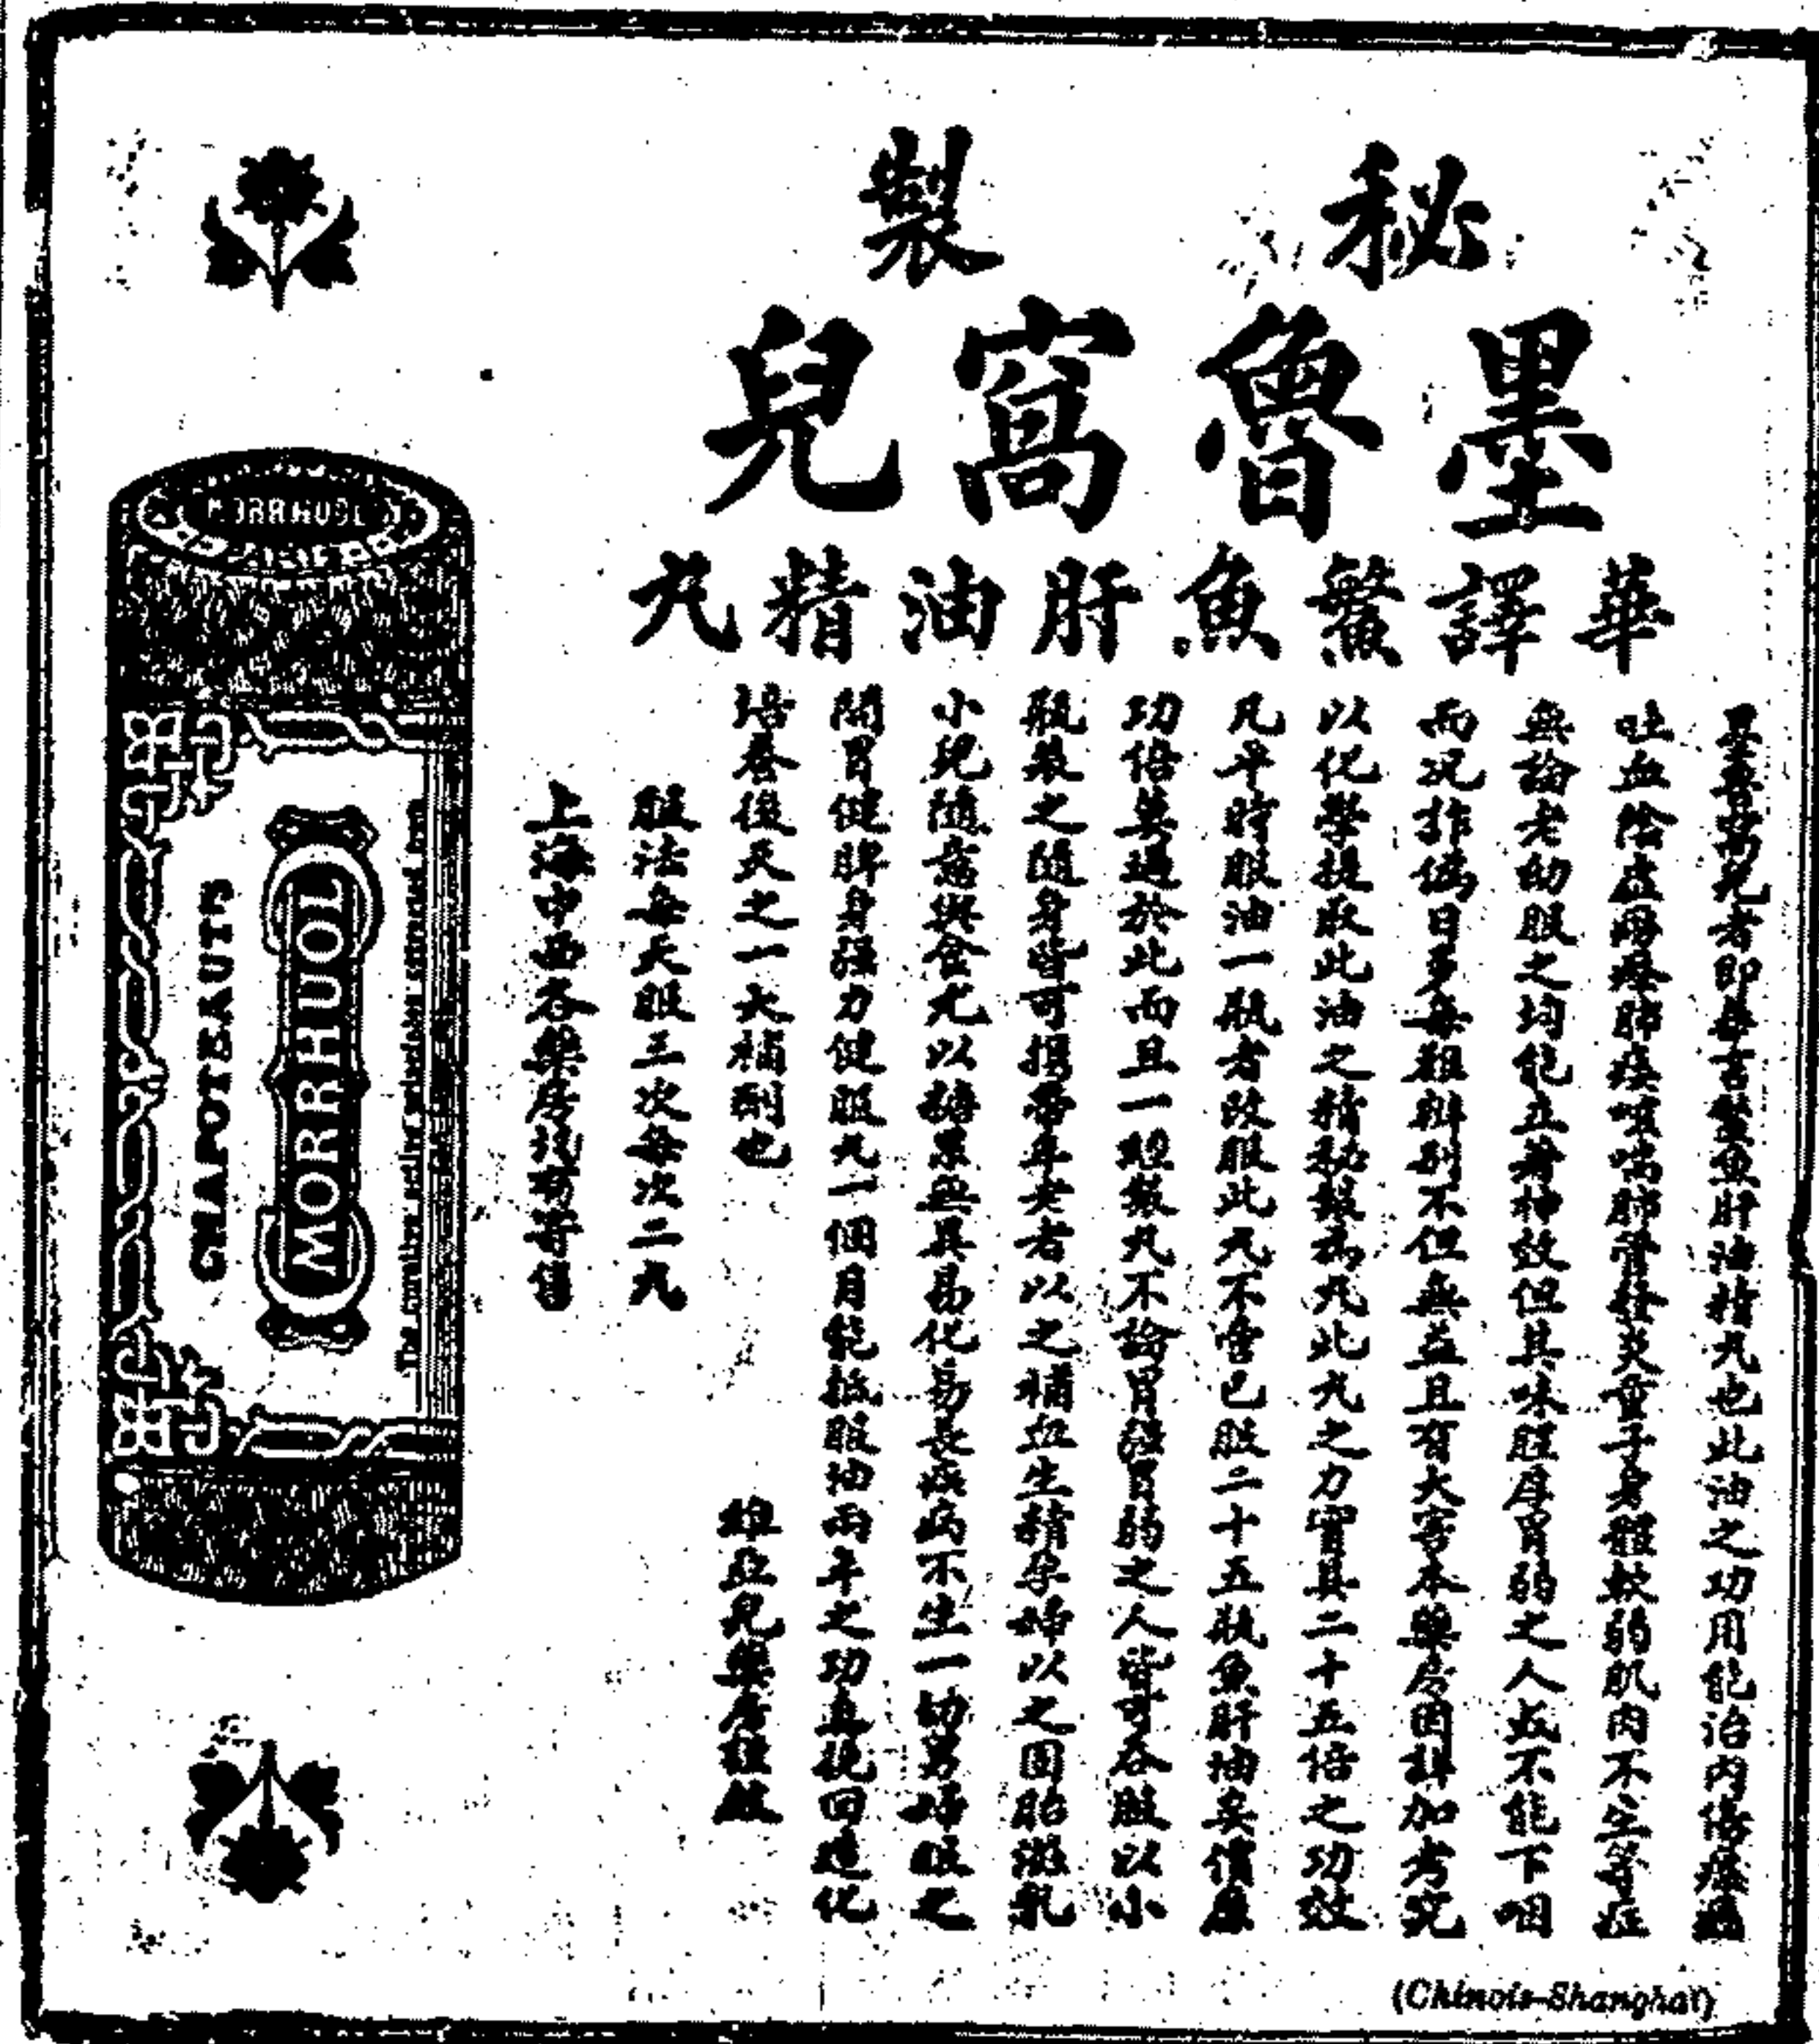 秘製
墨魯窩兒
華譯鱉魚肝油精丸
墨魯窩兒者即華言鱉魚肝油精丸也此油之功用能治內傷癆
吐血陰虛癆肺痰咳喘肺發炎童子身體軟弱肌肉不生等症
無論老幼服之均能立著神效但其味腥厚胃弱之人或不能下咽
而况作偽日多每難辨別不但無益且有大害本藥房因詳加考究
以化學提取此油之精秘製為丸此丸之力實具二十五倍之功效
凡平時服油一瓶者改服此丸不啻已服二十五瓶魚肝油矣價廉
功倍莫過於此而且一經製丸不論胃强胃弱之人皆可吞服以小
瓶裝之隨身皆可携帶年老者以之補血生精孕婦以之固胎滋乳
小兒隨意與食尤以糖果無異易化易長疾病不生一切男婦服之
開胃健脾身强力健服丸一個月能抵服油兩年之功真挽回造化
培養後天之一大補劑也
韋亞兒藥房謹啟
服法每天服三次每次二丸
上海中西各藥房均有寄售
MORRHUOL
CHAPOTEAUT'S
MORRHUOL
The curative active principles extracted from
(Chinois-Shanghaï)